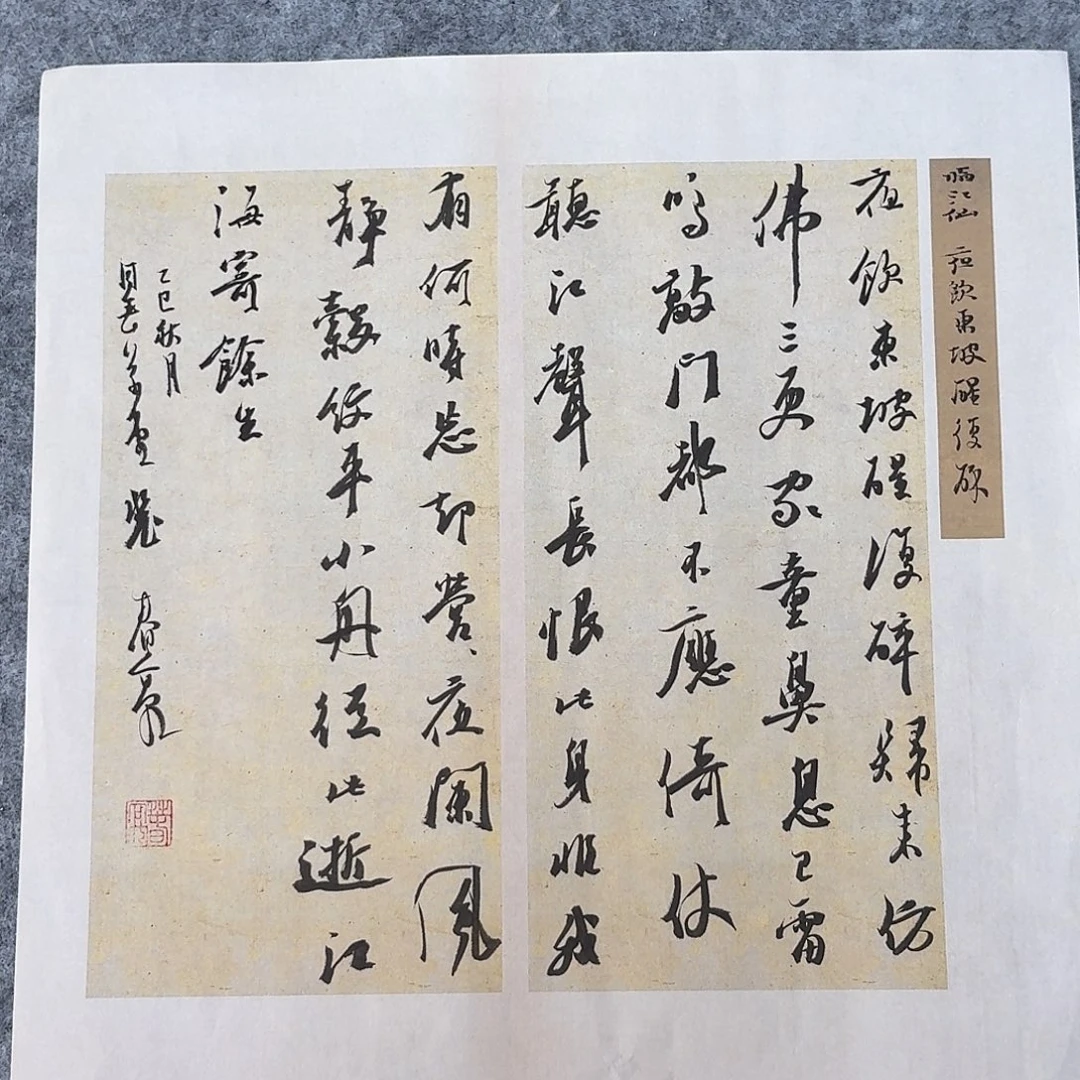 臨江仙 夜飲東坡醒復醉
夜飲東坡醒復醉歸来仿
佛三更家童鼻息已雷
鳴敲门都不應倚仗
聽江聲長恨此身非我
有何時忘却營〻夜闌風
静縠紋平小舟從此逝江
海寄餘生
乙巳秋月